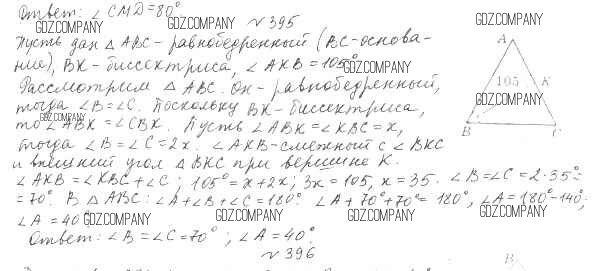 Ответ: ∠CMD=80°
GDZ.COMPANY GDZ.COMPANY GDZ.COMPANY
№395
Пусть дан △ABC - равнобедренный (BC-основа-
ние), BK - биссектриса, ∠AKB = 105°
GDZ.COMPANY
Рассмотрим △ABC. Он - равнобедренный,
тогда ∠B=∠C. Поскольку BK-биссектриса,
GDZ.COMPANY
то ∠ABK = ∠CBK. Пусть ∠ABK=∠KBC=x,
тогда ∠B=∠C=2x. ∠AKB-смежный с ∠BKC
и внешний угол △BKC при вершине K.
∠AKB=∠KBC+∠C; 105°=x+2x; 3x=105, x=35. ∠B=∠C=2·35°=
=70°. В △ABC: ∠A+∠B+∠C=180°. ∠A+70°+70°=180°, ∠A=180°-140°;
∠A=40°
GDZ.COMPANY GDZ.COMPANY GDZ.COMPANY GDZ.COMPANY
Ответ: ∠B=∠C=70°; ∠A=40°.
№396
A
105 K
GDZ.COMPANY
B C
B